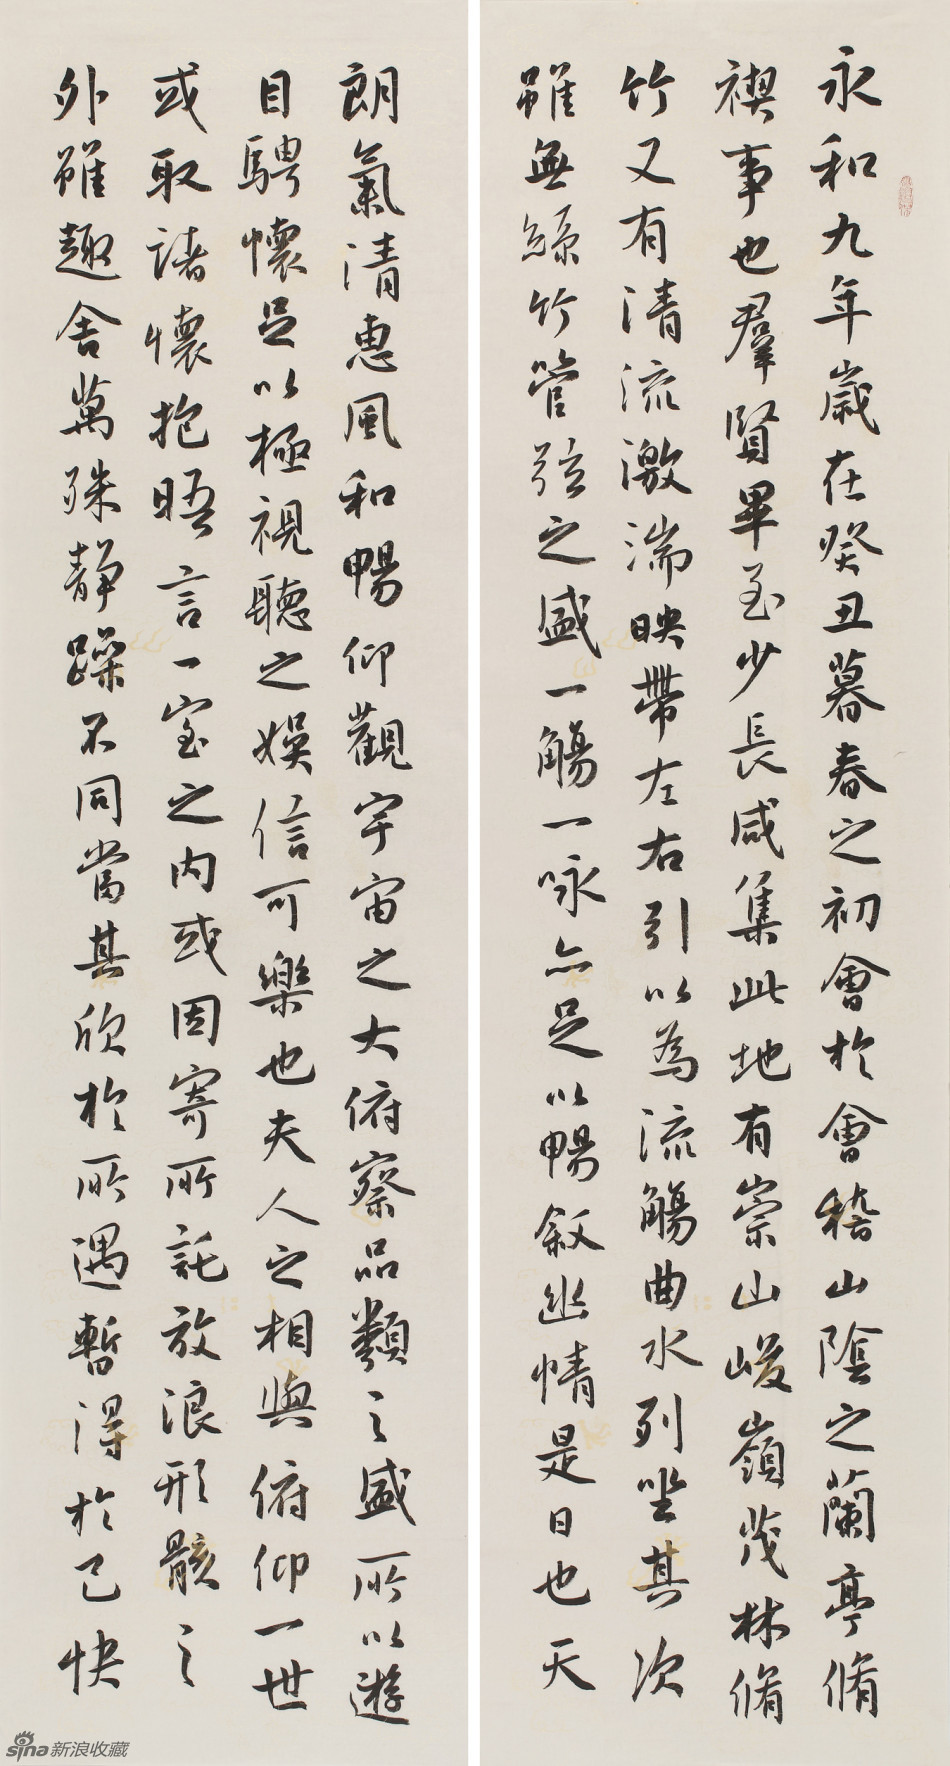 永和九年歲在癸丑暮春之初會於會稽山陰之蘭亭脩
禊事也羣賢畢至少長咸集此地有崇山峻嶺茂林脩
竹又有清流激湍映帶左右引以為流觴曲水列坐其次
雖無絲竹管弦之盛一觴一咏亦足以暢敘幽情是日也天
朗氣清惠風和暢仰觀宇宙之大俯察品類之盛所以遊
目騁懷足以極視聽之娛信可樂也夫人之相與俯仰一世
或取諸懷抱晤言一室之內或因寄所託放浪形骸之
外雖趣舍萬殊靜躁不同當其欣於所遇暫得於己快
sina新浪收藏